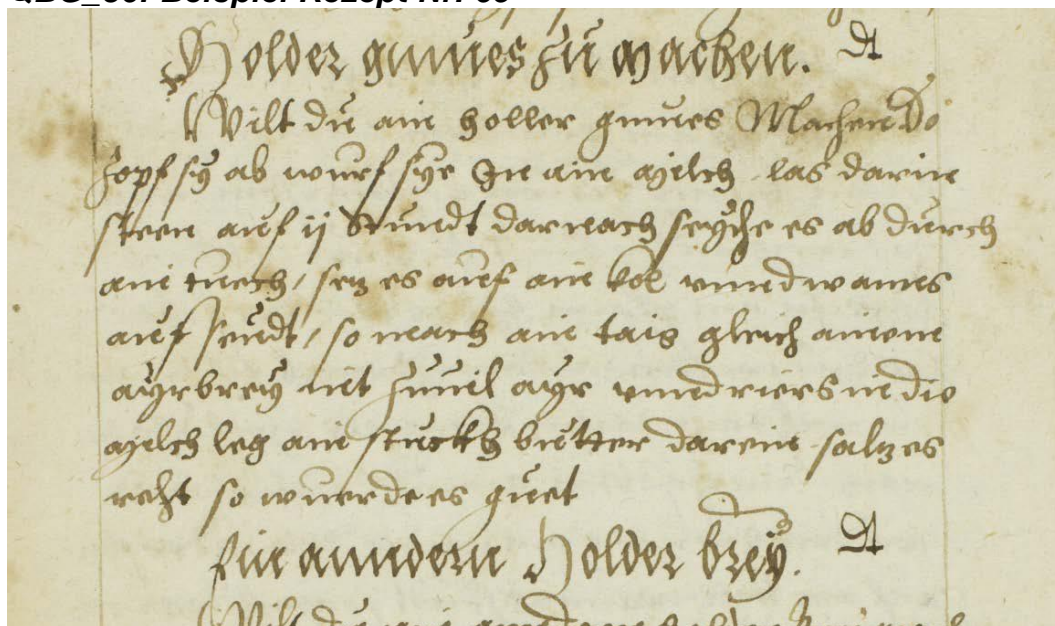 Holder gmues zu machen.
Wilt du ain holler gmues Machen So
Zopf sÿ ab wurf sÿe In ain milch las darin
steen auf ij Stundt darnach seÿhe es ab durch
ain tuech, setz es auf ain kol vnnd wanns
auf seudt, so mach ain taig gleich ainem
aÿrbreÿ nit zuuil aÿr vnnd riers in die
milch leg ain stuckh butter darein saltz es
recht so wuerdt es guet
Ain anndern Holder breÿ.
Wilt du ain